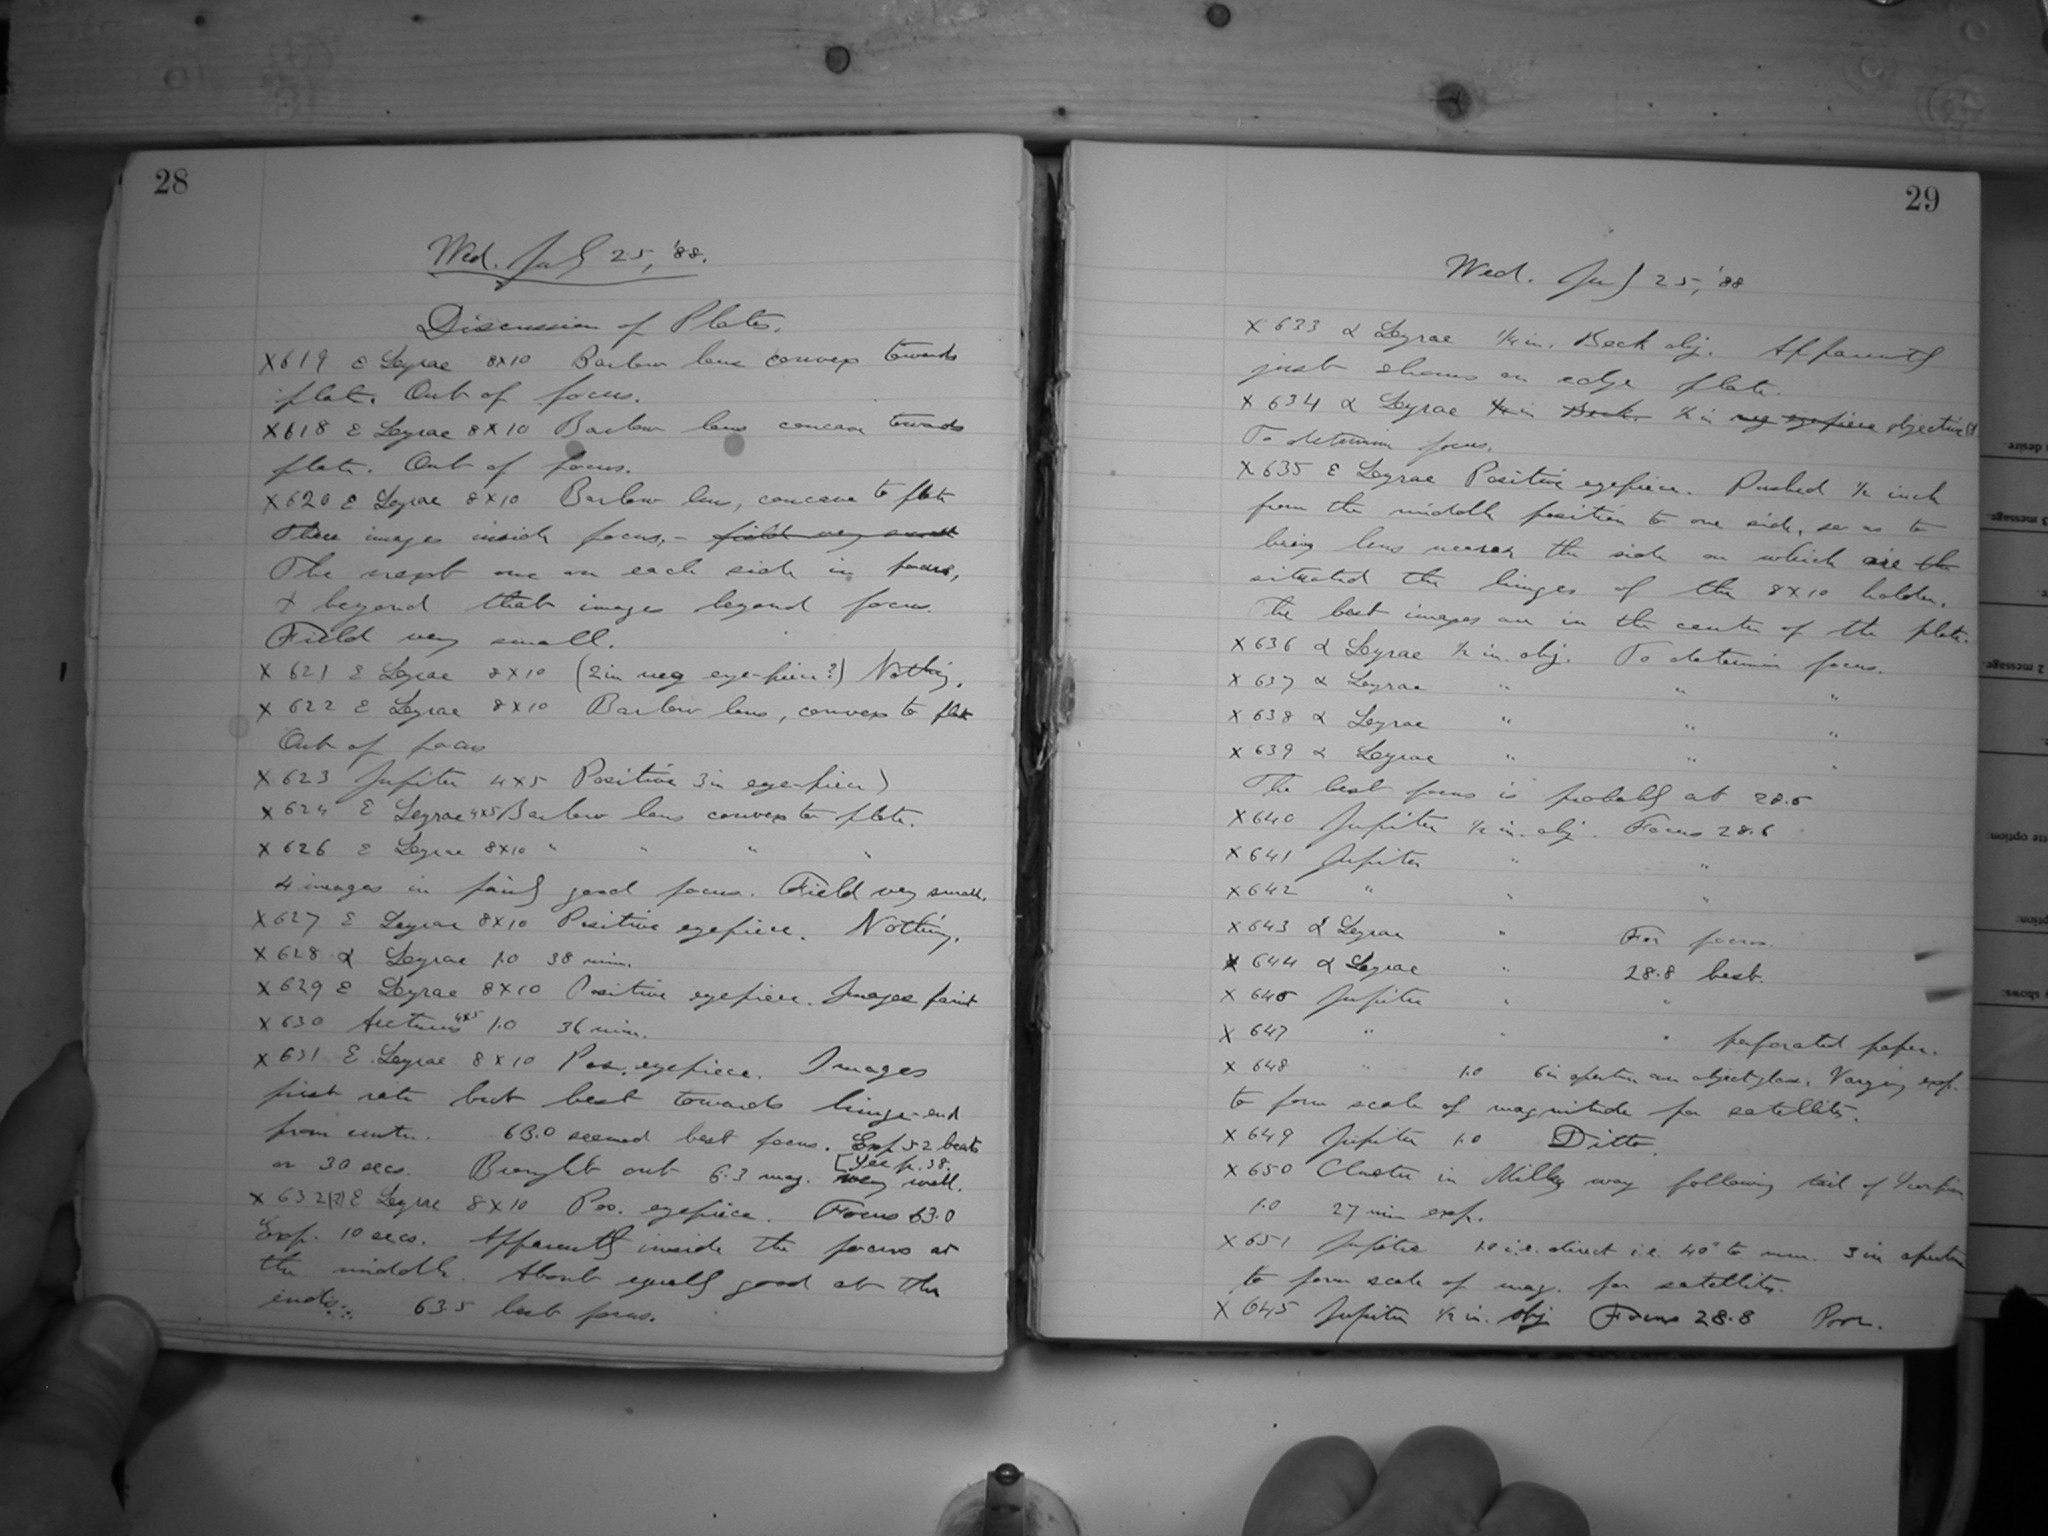 28
Wed. July 25, '88.
Discussion of Plates.
X619 ε Lyrae 8x10 Barlow lens convex towards
plate. Out of focus.
X618 ε Lyrae 8x10 Barlow lens concave towards
plate. Out of focus.
X620 ε Lyrae 8x10 Barlow lens, concave to plate
Three images inside focus, - field very small
The next one on each side in focus,
+ beyond that images beyond focus.
Field very small.
X 621 ε Lyrae 8x10 (2in neg eye-piece?) Nothing.
X 622 ε Lyrae 8x10 Barlow lens, convex to plate
Out of focus
X 623 Jupiter 4x5 Positive 3in eye-piece)
X 624 ε Lyrae 4x5 Barlow lens convex to plate.
X 626 ε Lyrae 8x10 " " " "
4 images in fairly good focus. Field very small.
X 627 ε Lyrae 8x10 Positive eyepiece. Nothing.
X 628 α Lyrae 1.0 38 min.
X 629 ε Lyrae 8x10 Positive eyepiece. Images faint
X 630 Arcturus 4x5 1.0 36 min.
X 631 ε Lyrae 8x10 Pos. eyepiece. Images
first rate but best towards hinge-end
from centre. 63.0 seemed best focus. Exp 52 beats
or 30 secs. Brought out 6.3 mag. very well.
[See p. 38.
X 632(?) ε Lyrae 8x10 Pos. eyepiece. Focus 63.0
Exp. 10 secs. Apparently inside the focus at
the middle. About equally good at the
ends ∴ 63.5 best focus.
29
Wed. July 25, '88
X 633 α Lyrae 1/4 in. Beck obj. Apparently
just shows on edge plate.
X 634 α Lyrae 1/4 in Beck. 1/2 in neg eyepiece objective
To determine focus.
X 635 ε Lyrae Positive eyepiece. Pushed 1/2 inch
from the middle position to one side, so as to
bring lens nearer the side on which are the
situated the hinges of the 8x10 holder.
The best images are in the center of the plate.
X 636 α Lyrae 1/2 in. obj. To determine focus.
X 637 α Lyrae " " "
X 638 α Lyrae " " "
X 639 α Lyrae " " "
The best focus is probably at 28.6
X 640 Jupiter 1/2 in. obj. Focus 28.6
X 641 Jupiter " "
X 642 " " "
X 643 α Lyrae " For focus.
X 644 α Lyrae " 28.8 best.
X 646 Jupiter " "
X 647 " " " perforated paper.
X 648 " 1.0 6in aperture over object glass. Varying exp.
to form scale of magnitude for satellites.
X 649 Jupiter 1.0 Ditto.
X 650 Cluster in Milky way following tail of Scorpion
1.0 27 min exp.
X 651 Jupiter 1.0 i.e. direct i.e. 40" to mm. 3 in aperture
to form scale of mag. for satellites.
X 645 Jupiter 1/2 in. obj Focus 28.8 Poor.